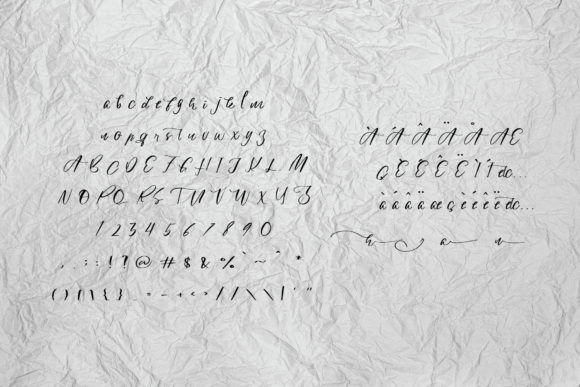 a b c d e f g h i j k l m
n o p q r s t u v w x y z
A B C D E F G H I J K L M
N O P Q R S T U V W X Y Z
1 2 3 4 5 6 7 8 9 0
, . ; : ! ? @ # $ & % ` ~ ^ *
( ) [ \ { }
À Á Â Ä Å Æ
Ç È É Ê Ë Ì Í dc...
à á â ä æ ç è é ê ë dc...
h a n